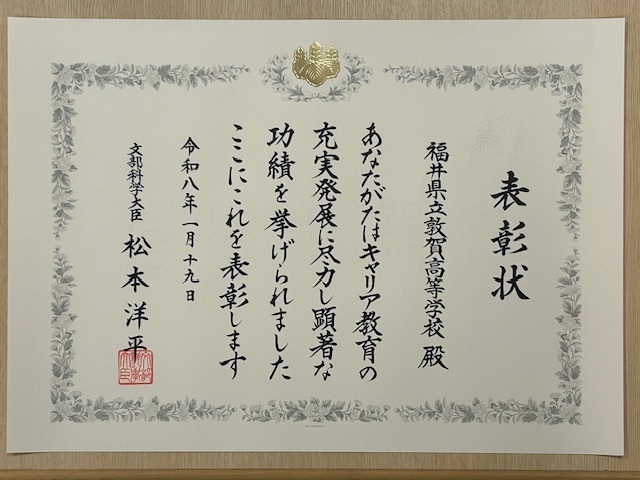 表彰状
福井県立敦賀高等学校 殿
あなたがたはキャリア教育の
充実発展に尽力し顕著な
功績を挙げられました
ここにこれを表彰します
令和八年一月十九日
文部科学大臣 松本洋平